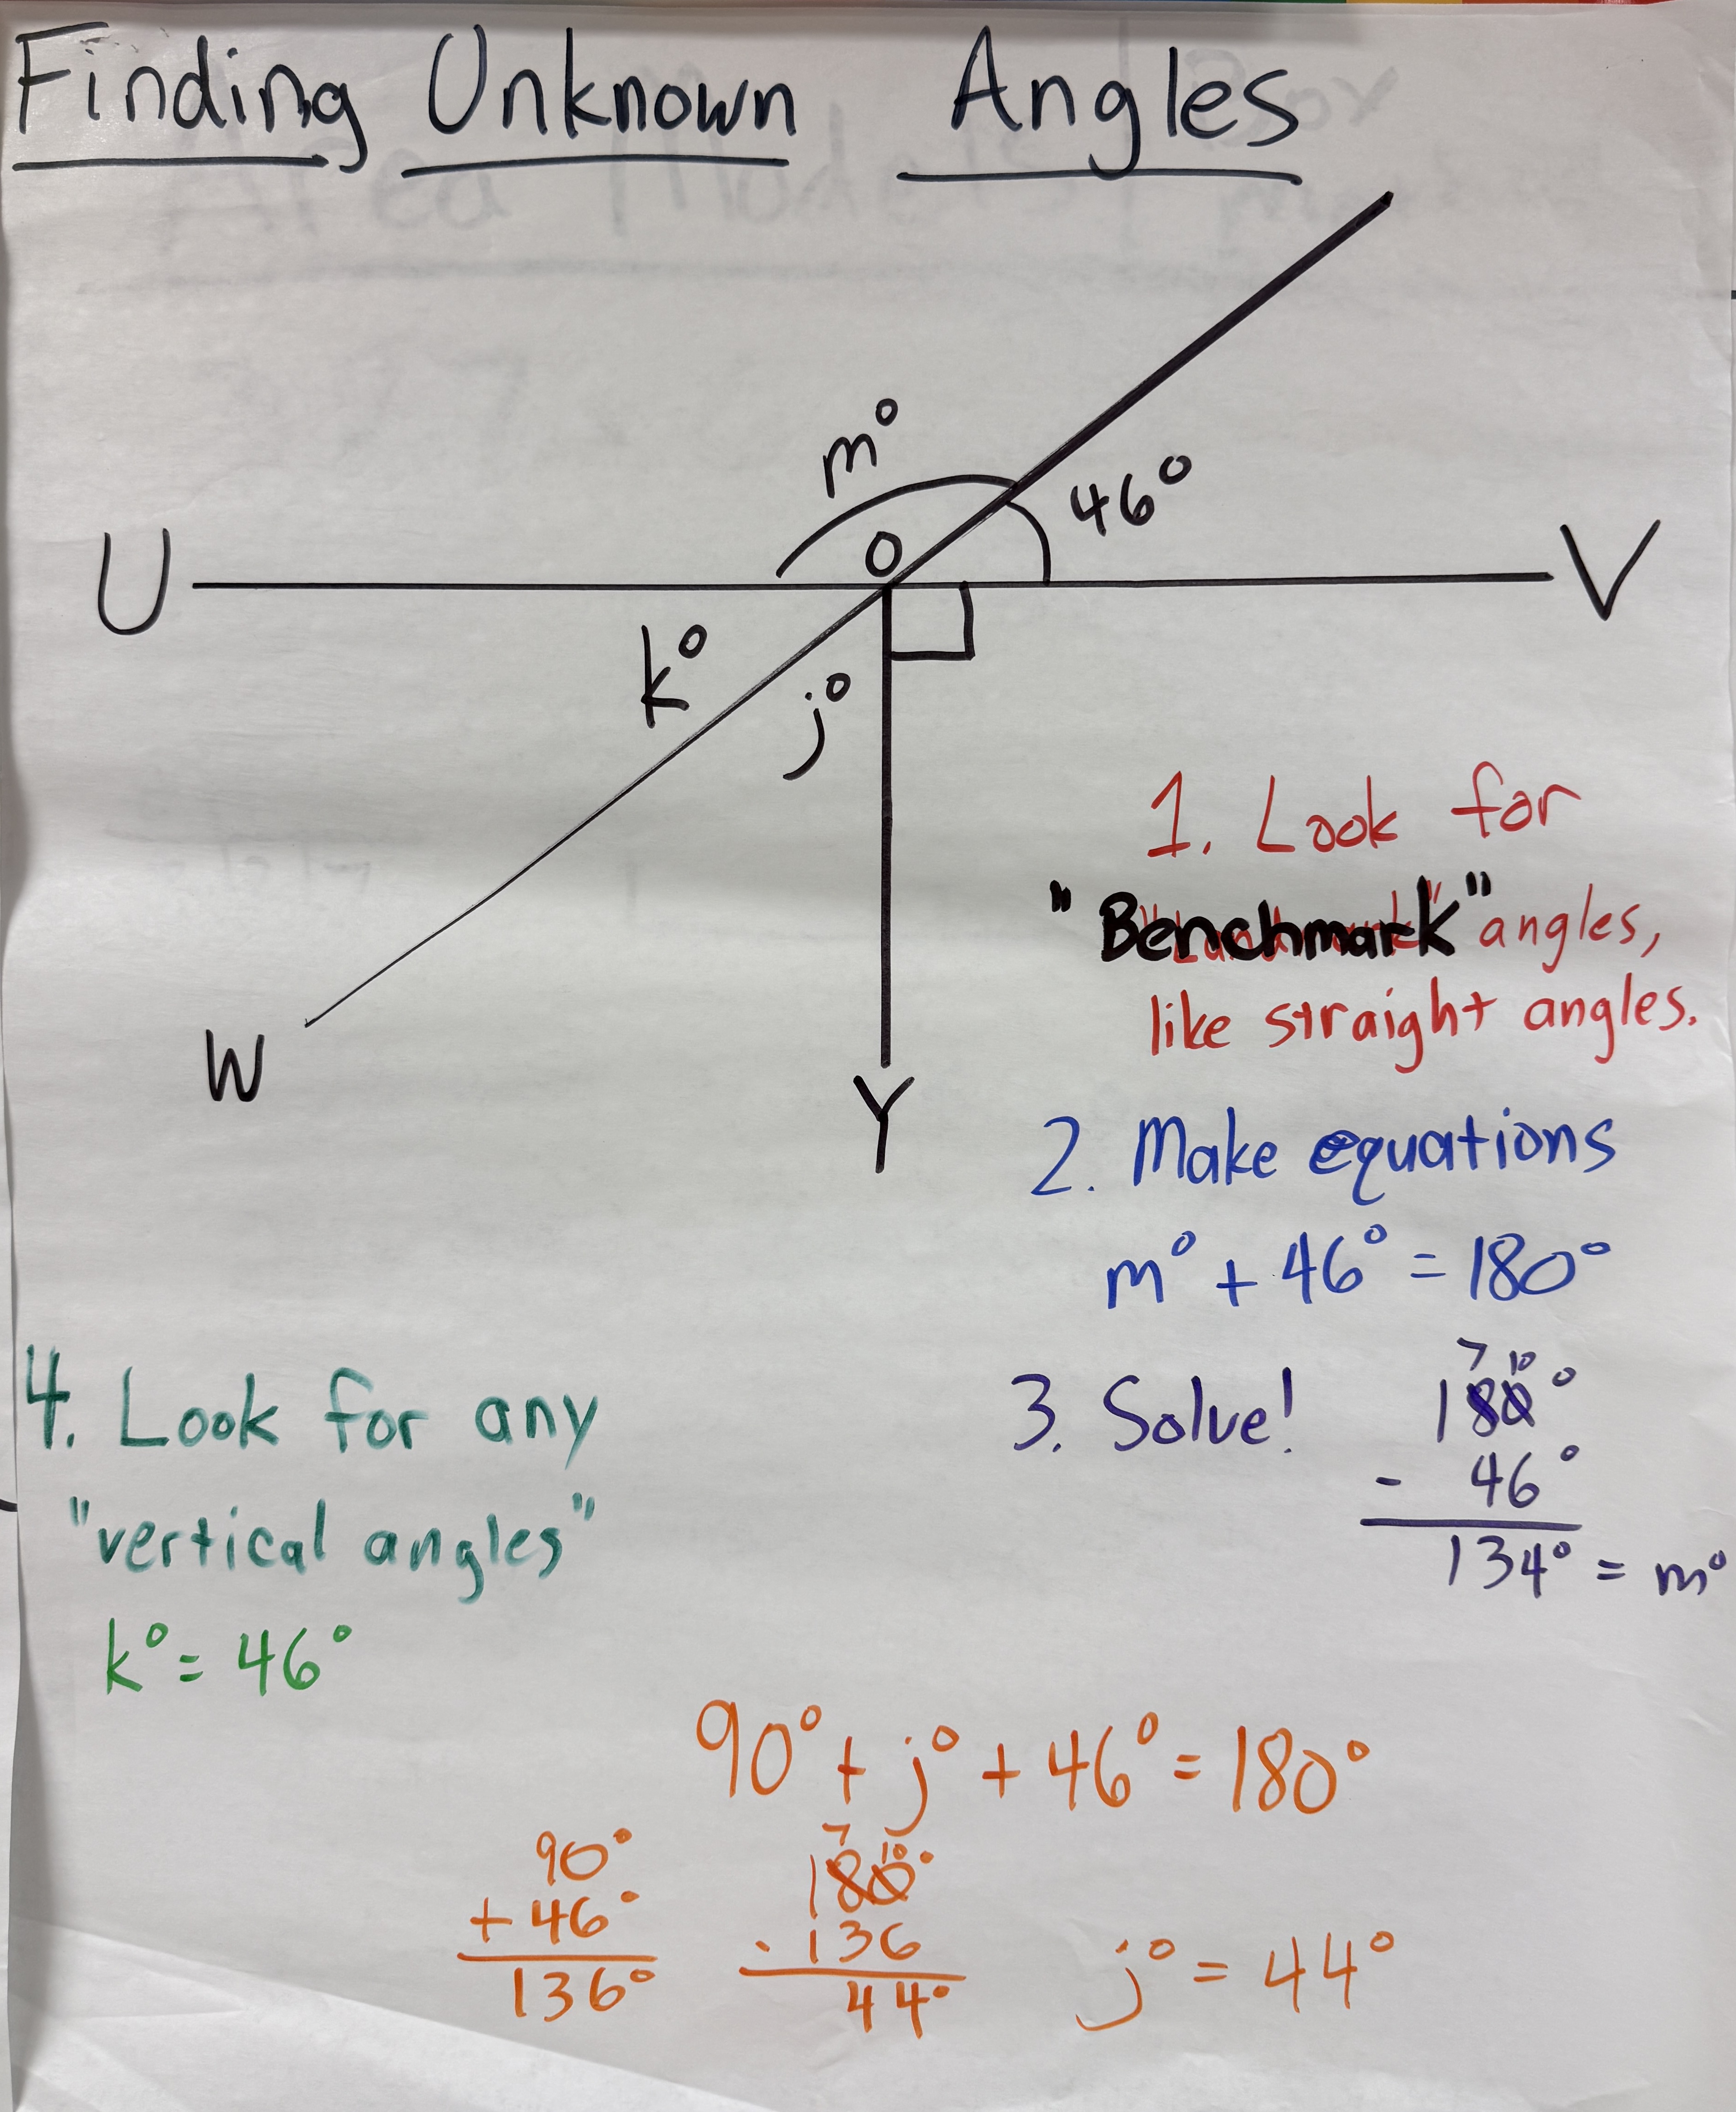 Finding Unknown Angles
m°
46°
O
U
V
k°
j°
W
Y
1. Look for
"Benchmark" angles,
like straight angles.
2. Make equations
m° + 46° = 180°
3. Solve!
7 10
180°
- 46°
134° = m°
4. Look for any
"vertical angles"
k° = 46°
90° + j° + 46° = 180°
90°
+ 46°
136°
7 10
180°
- 136
44°
j° = 44°